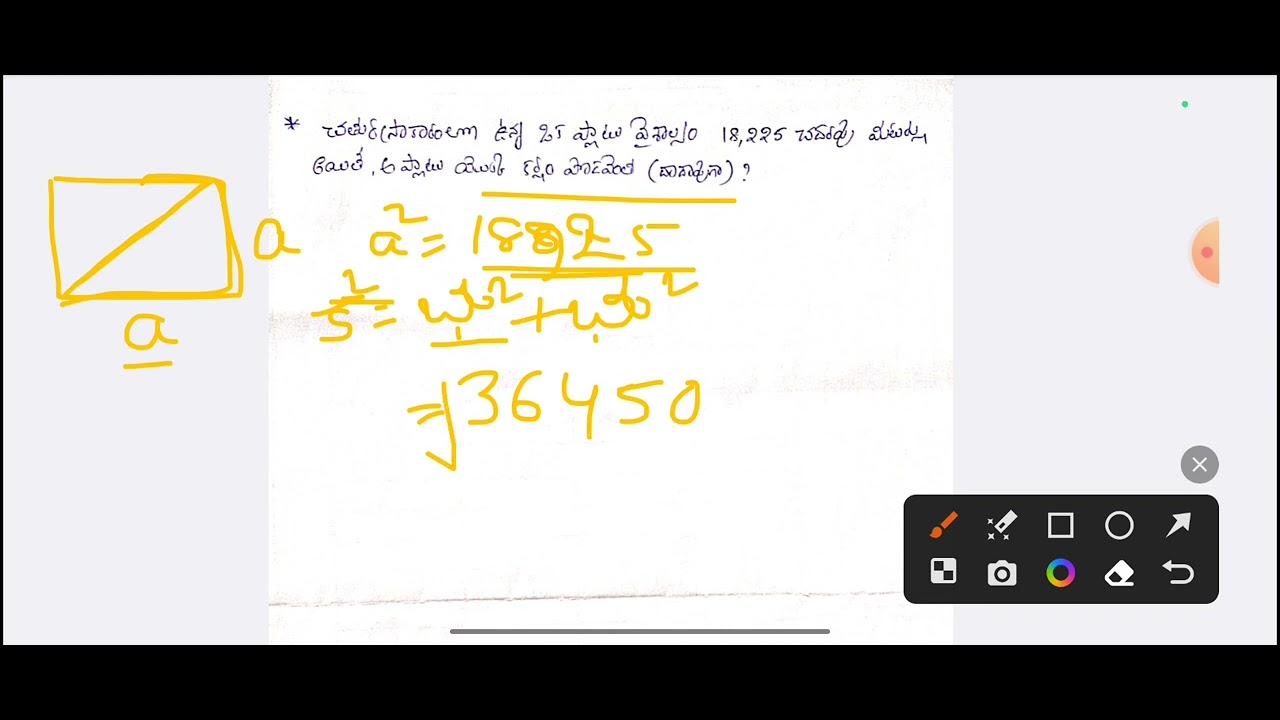 * చతురస్రాకారంలో ఉన్న ఒక ప్లాటు వైశాల్యం 18,225 చదరపు మీటర్లు
అయితే, ఆ ప్లాటు యొక్క కర్ణం పొడవెంత (దాదాపుగా) ?
a
a² = 18225
5² = భు² + భు²
a
= √36450